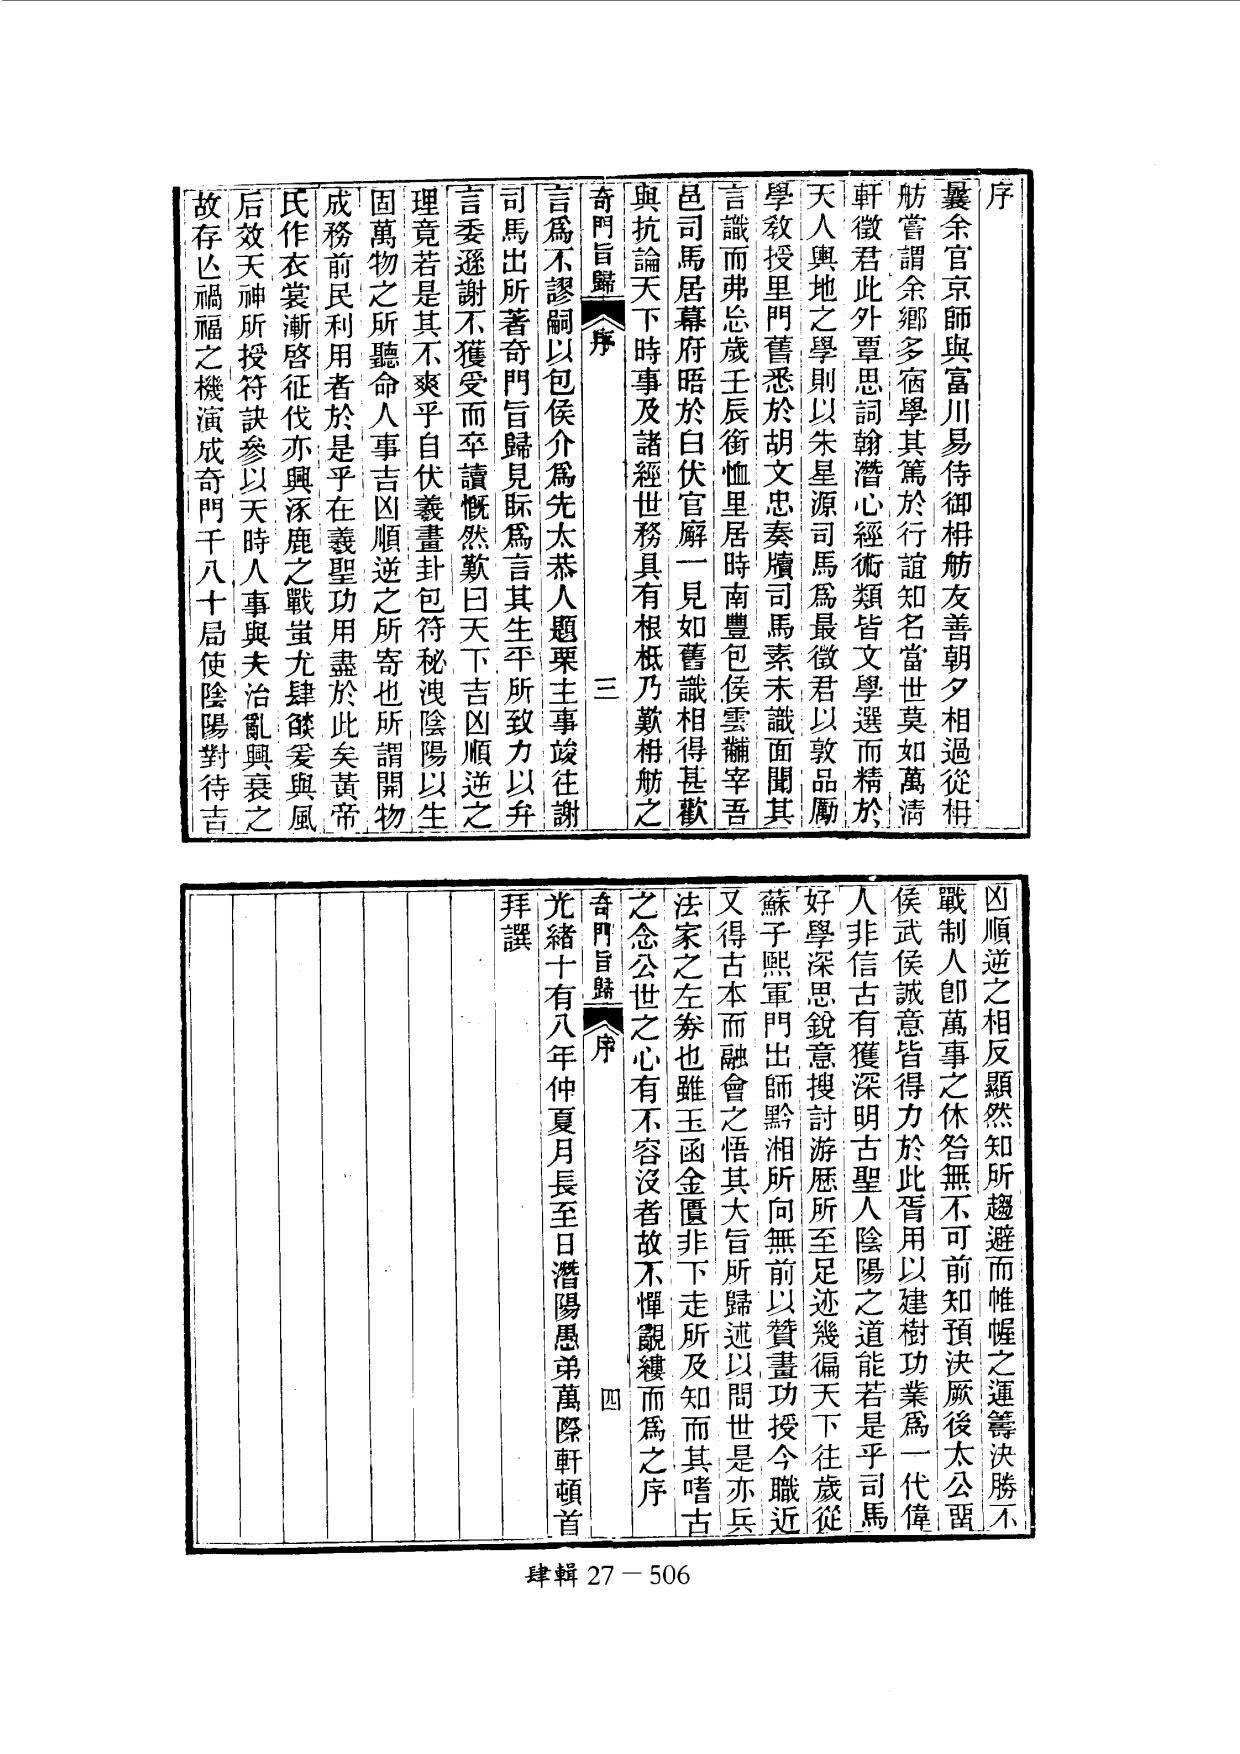 序
曩余官京師與富川易侍御枏舫友善朝夕相過從枏
舫嘗謂余鄉多宿學其篤於行誼知名當世莫如萬淸
軒徵君此外覃思詞翰潛心經術類皆文學選而精於
天人輿地之學則以朱星源司馬爲最徵君以敦品勵
學敎授里門舊悉於胡文忠奏牘司馬素未識面聞其
言識而弗忘歲壬辰銜恤里居時南豐包侯雲黼宰吾
邑司馬居幕府晤於白伏官廨一見如舊識相得甚歡
與抗論天下時事及諸經世務具有根柢乃歎枏舫之
奇門旨歸 序 三
言爲不謬嗣以包侯介爲先太恭人題栗主事竣往謝
司馬出所著奇門旨歸見眎爲言其生平所致力以弁
言委遜謝不獲受而卒讀慨然歎曰天下吉凶順逆之
理竟若是其不爽乎自伏羲畫卦包符秘洩陰陽以生
固萬物之所聽命人事吉凶順逆之所寄也所謂開物
成務前民利用者於是乎在羲聖功用盡於此矣黃帝
氏作衣裳漸啓征伐亦興涿鹿之戰蚩尤肆燄爰與風
后效天神所授符訣參以天時人事與夫治亂興衰之
故存亾禍福之機演成奇門千八十局使陰陽對待吉
凶順逆之相反顯然知所趨避而帷幄之運籌決勝不
戰制人卽萬事之休咎無不可前知預決厥後太公畱
侯武侯誠意皆得力於此胥用以建樹功業爲一代偉
人非信古有獲深明古聖人陰陽之道能若是乎司馬
好學深思銳意搜討游歷所至足迹幾徧天下往歲從
蘇子熙軍門出師黔湘所向無前以贊畫功授今職近
又得古本而融會之悟其大旨所歸述以問世是亦兵
法家之左券也雖玉函金匱非下走所及知而其嗜古
之念公世之心有不容沒者故不憚覼縷而爲之序
奇門旨歸 序 四
光緒十有八年仲夏月長至日潛陽愚弟萬際軒頓首
拜譔
肆輯 27－506